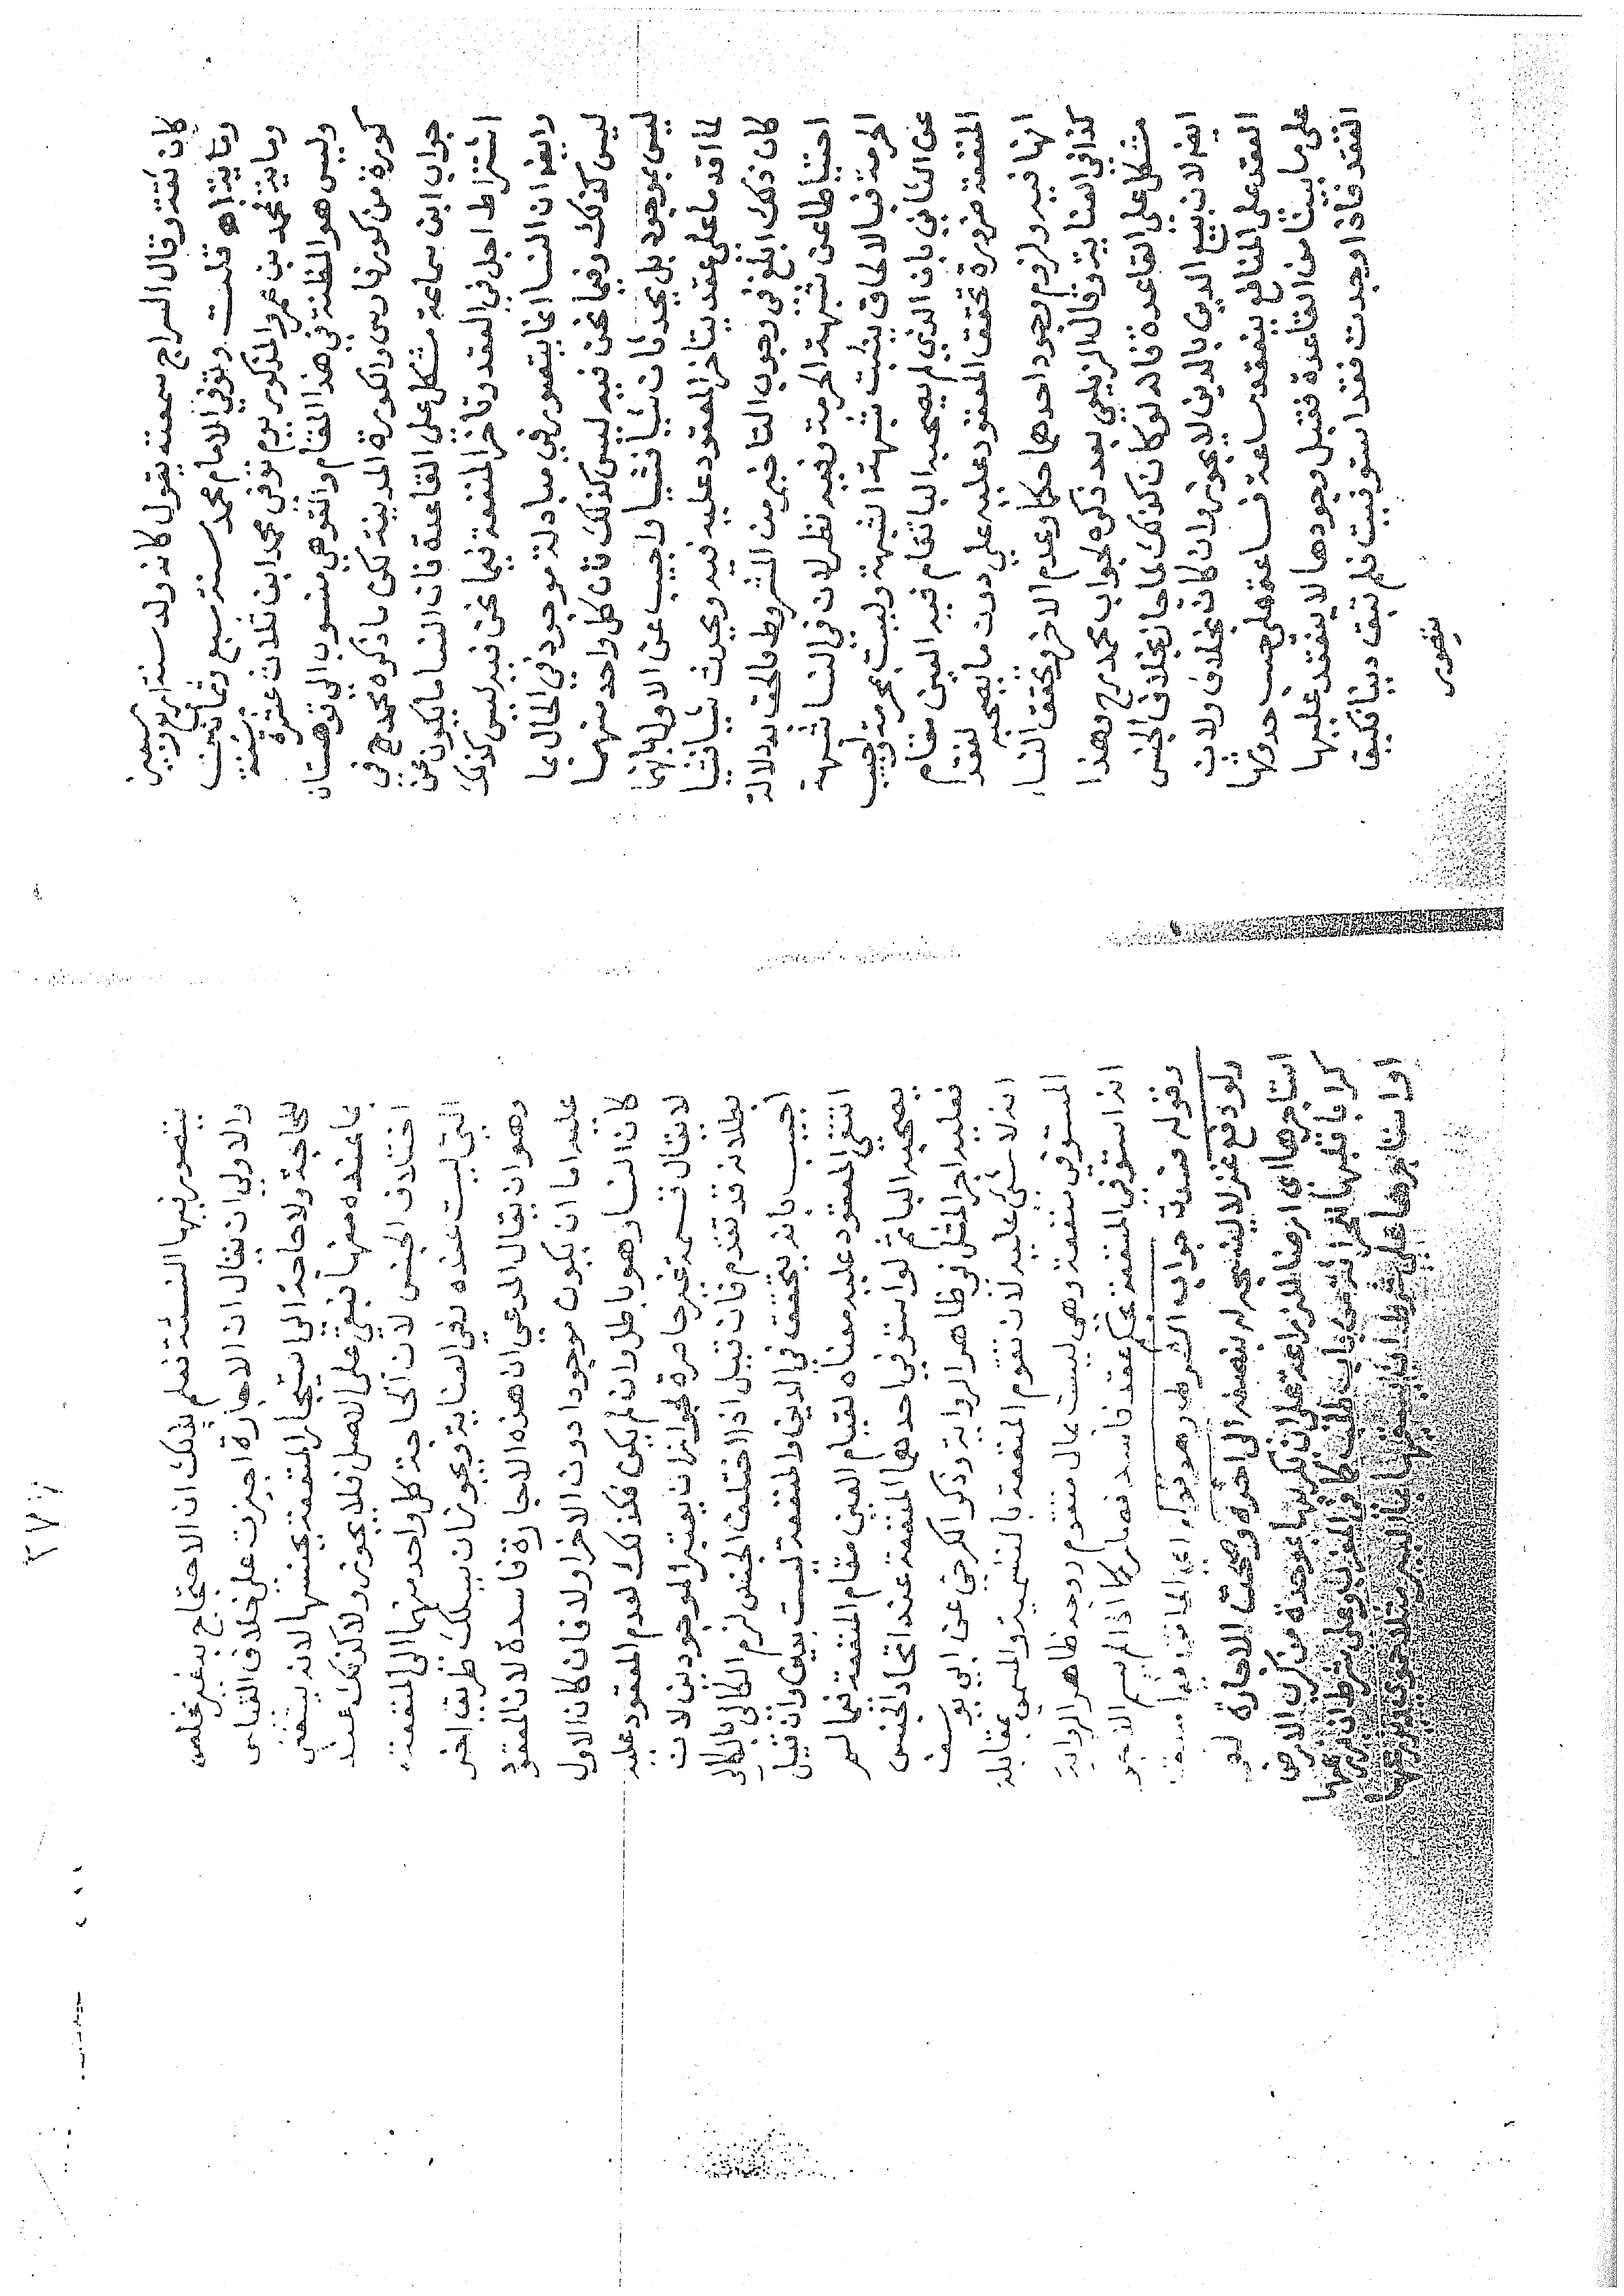 كان ثقة وقال السراج سمعته يقول كانه ولد سنة اربع وتسعين
وماية اه قلت وتوفي الامام محمد سنة سبع وثمانين
وماية محمد بن عمر المذكور يوم توفي محمد ابن ثلاث عشرة سنة
وليس هو المظنة في هذا المقام والقوهي منسوب الى قوهستان
كورة من كور فارس والكورة المدينة لكن ما ذكره محمد رح في
جواب ابن سماعة مشكل على القاعدة فان النسا ما يكون عن
اشتراط اجل في العقد وتاخر المنفعة فيما نحن فيه ليس كذلك
وايضا ان النسا انما يتصور في مبادلة موجود في الحال بما
ليس كذلك وفيما نحن فيه ليس كذلك فان كل واحد منهما
ليس بموجود بل يحدثان شيا فشيا واجيب عن الاول بانهما
لما اقدما على عقد يتاخر المعقود عليه فيه ويحدث شيا فشيا
كان ذلك ابلغ في وجوب التاخير من المشروط فالحق به دلالة
احتياطا عن شبهة الحرمة وفيه نظر لان في النسا شبهة
الحرمة فبالالحاق يثبت شبهة الشبهة وليست بمحرمة واجيب
عن الثاني بان الذي لم يصحبه الباتقام فيه العين مقام
المنفعة ضرورة تحقق المعقود عليه على دون ما يصحبه لفقد
انها فيه ولزم وجود احدهما حكما وعدم الاخر وتحقق النسا
كذا في العناية وقال الزيلعي بعد ذكره لجواب محمد رح وهذا
مشكل على القاعدة فانه لو كان كذلك لما جاز بخلاف الجنس
ايضا لان بيع الدين بالدين لا يجوز وان كان بخلاف ولان
العقد على المنافع ينعقد ساعة فساعة على حسب حدوثها
على ما بينا من القاعدة فقبل وجودها لا ينعقد عليها
العقد فاذا وجدت فقد استوفيت فلم تبق دينا فكيف
يتصور

٢٧٠
يتصور فيها النسئة فعلم بذلك ان الاحتجاج بغير مخلص
والاولى ان يقال ان الاجارة اجيزت على خلاف القياس
للحاجة ولا حاجة الى استيجار المنفعة بجنسها لانه يستغني
بما عنده منها فبقي على الاصل فلا يجوز ولا كذلك عند
اختلاف الجنس لان الحاجة كل واحد منهما الى المنفعة
التي ليست عنده بغي العناية ويجوز ان يسلك طريق اخر
وهو ان يقال المدعي ان هذه الاجارة فاسدة لان المعقود
عليه اما ان يكون موجودا دون الاخر اولا فان كان الاول
كان النسا وهو باطل وان لم يكن فكذلك لعدم المعقود عليه
لا يقال قسمة غير حاصرة لجواز ان يعتبر الموجودين لان
بطلانه قد تقدم فان قيل اذا اختلف الجنس لزم الكالي بالكالي
اجيب بانه يتحقق في الدين والمنفعة ليست بدين وان قيل
انتفى المعقود عليه معناه لقيام العين مقام المنفعة فيما لم
يصحبه الباثم لو استوفى احدهما المنفعة عند اتحاد الجنس
فعليه اجر المثل في ظاهر الرواية وذكر الكرخي عن ابي يوسف
انه لا شي عليه لان تقوم المنفعة بالتسمية والمسمى بمقابلة
المستوفى منفعة وهي ليست بمال متقوم ووجه ظاهر الرواية
انه استوفى المنفعة بحكم عقد فاسد فصار كما اذا لم يسم الاجر
وقوله فسدت جواب الشرط وهو قوله
ولو دفع غزلا لينسجه له بنصفه الى اخره وصحت الاجارة لو
استاجرها اي ارضا للزراعة على ان يكريها
كرابا
او استاجرها على